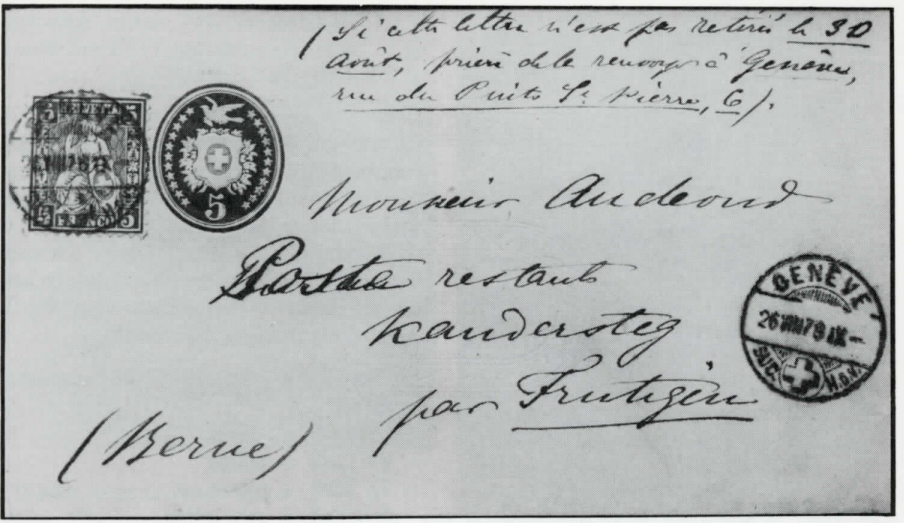 (Si cette lettre n'est pas retirée le 30
Août, prière de la renvoyer à Genève,
rue du Puits St Pierre, 6).
5 5
FRANCO
5 5
5
Monsieur Audeoud
Poste restante
Kandersteg
par Frutigen
(Berne)
GENÈVE
26 VIII 78 IX –
SUC. H.D.V.